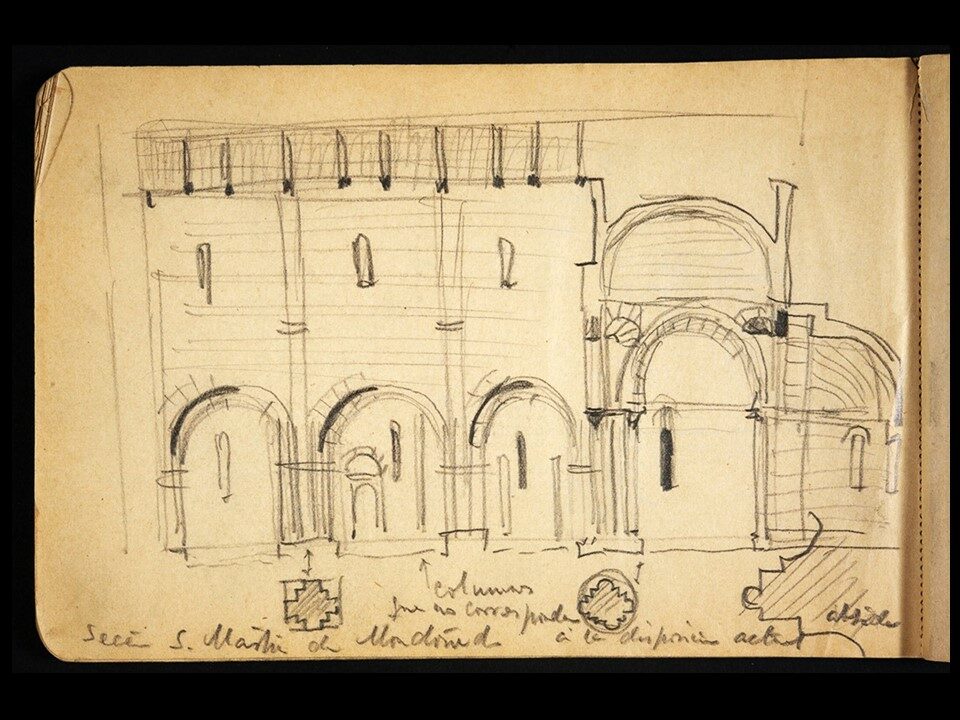 columnas
que no corresponden
Secció S. Martin de Mondoñedo a la disposicio actual
absida